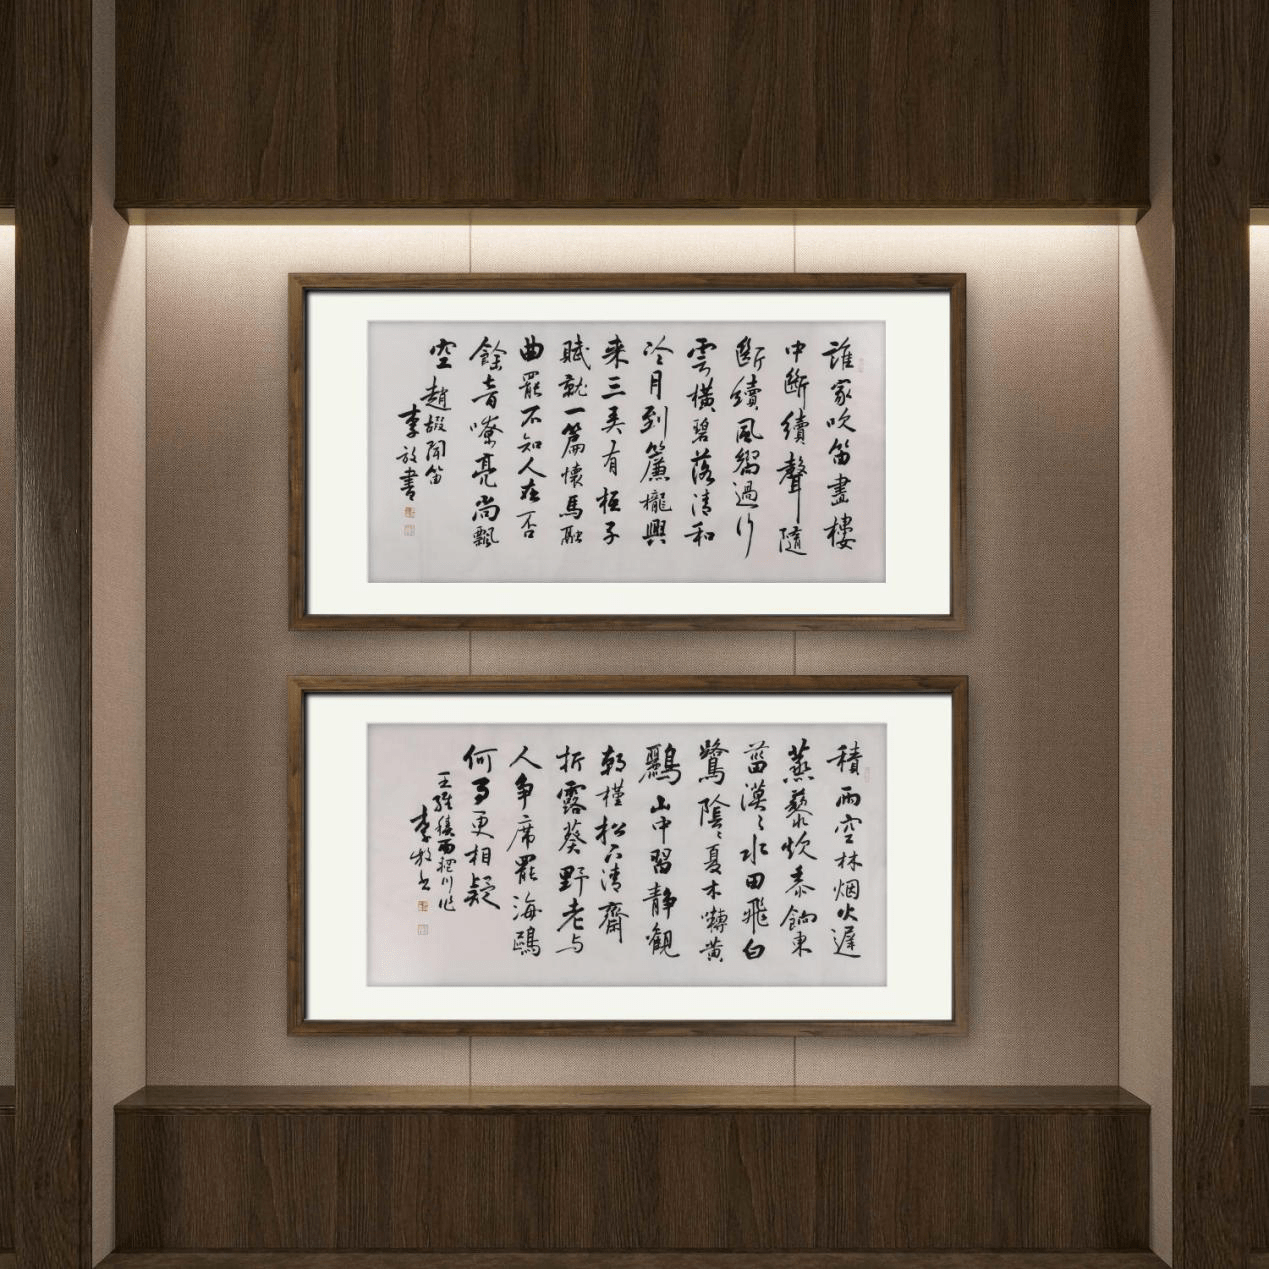 誰家吹笛畫樓
中斷續聲隨
斷續風響遏行
雲橫碧落清和
冷月到簾櫳興
來三弄有桓子
賦就一篇懷馬融
曲罷不知人在否
餘音嘹亮尚飄
空 趙嘏聞笛
李放書
積雨空林烟火遲
蒸藜炊黍餉東
菑漠〻水田飛白
鷺陰〻夏木囀黃
鸝山中習靜觀
朝槿松下清齋
折露葵野老与
人争席罷海鷗
何事更相疑
王維積雨輞川作
李放書